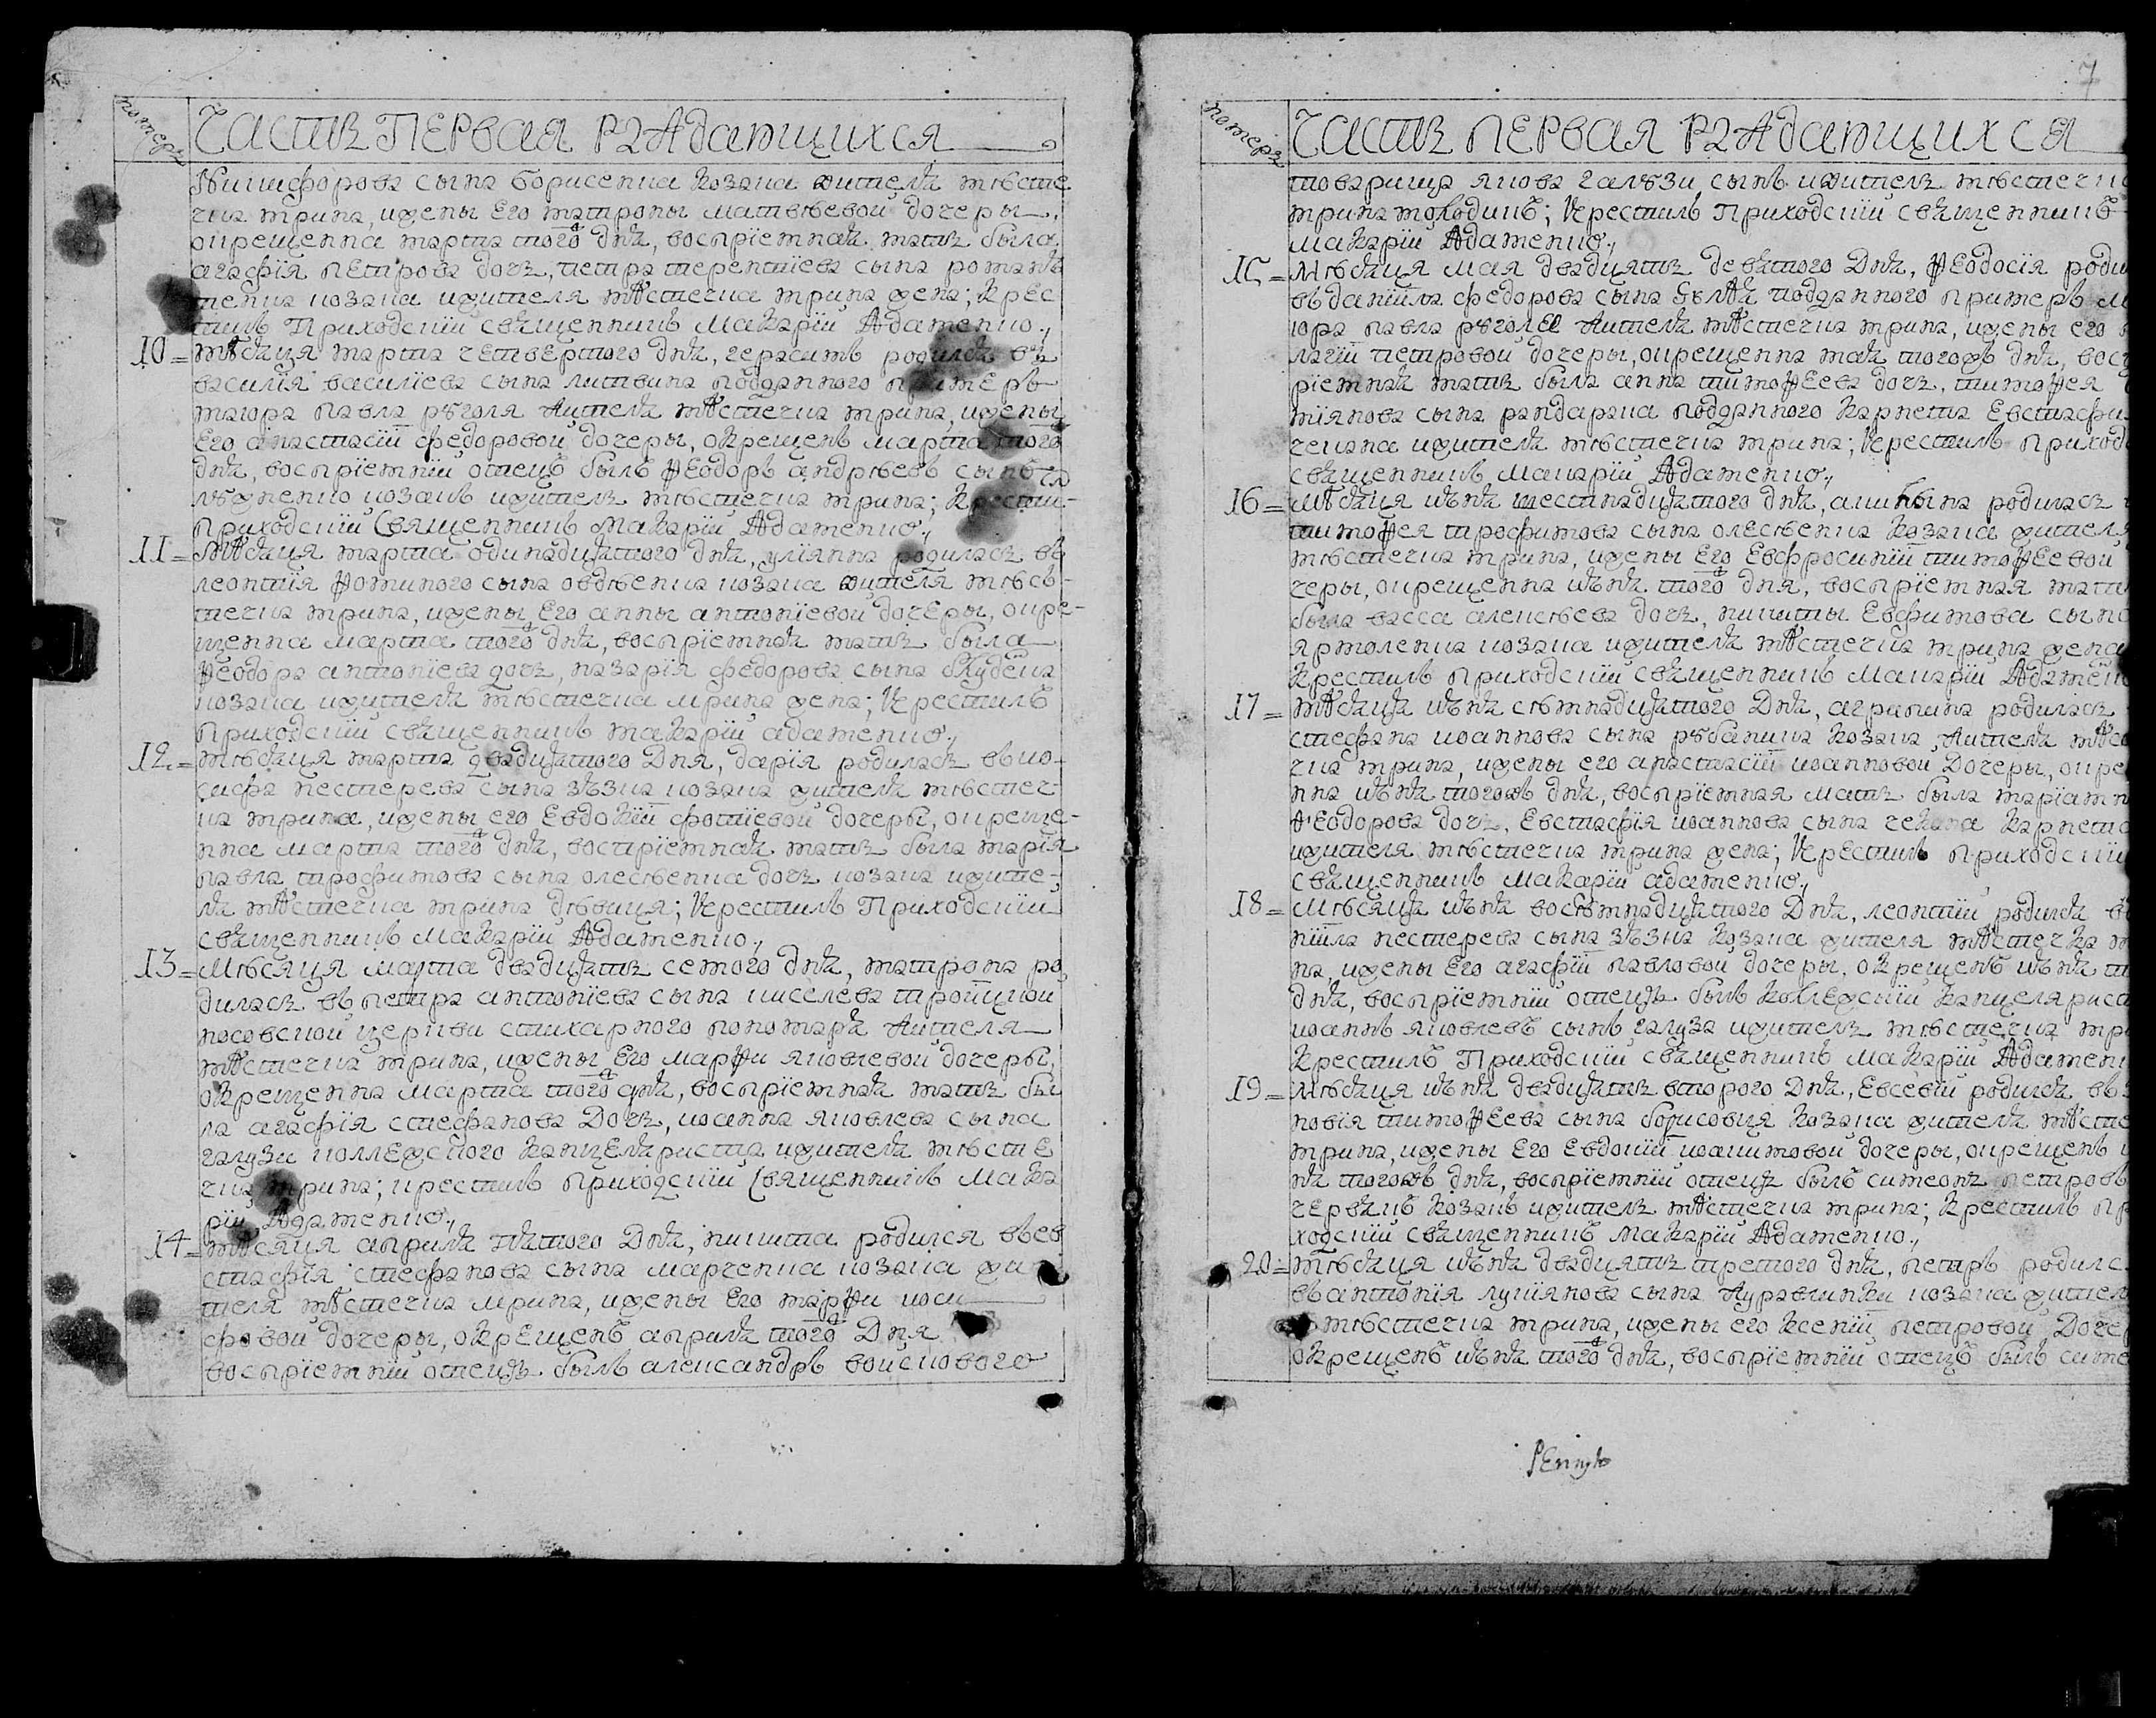 номеръ
Часть первая раждающихся
Никифорова сына борисенка козака жителя мѣсте
чка мрина, ижены его матроны матвѣевой дочеры
окрещенна марта того ж дня, воспрїемная мать была
агафїя петрова дочъ, петра терентїева сына романѣ
менка козака ижителя мѣстечка мрина жена; крес
тилъ Приходскїй священникъ Макарїй Адаменко.,
10 = мѣсяця марта четвертого дня, герасимъ родился въ
василїя василїева сына литвина подданного примеръ
маюра павла рѣголя жителя мѣстечка мрина, ижены
его анастасїй федоровой дочеры, окрещенъ марта того
дня, воспрїемнїй отецъ былъ Ѳеодоръ андрѣевъ сынъ га
лѣжненко козакъ ижитель мѣстечка мрина; крестил
приходскїй Священникъ Макарїй Адаменко.,
11 = Мѣсяця марта одинадцятого дня, улїянна родилась въ
леонтїя Ѳоминого сына овдѣенка козака жителя мѣсь-
течка мрина, ижены его анны антонїевой дочеры, окре-
щенна марта того ж дня, воспрїемная мать была
Ѳеодора антонїева дочъ, назарїя федорова сына скудена
козака ижителя мѣстечка мрина жена; крестилъ
приходскїй священникъ макарїй адаменко.,
12. = мѣсяця марта двадцятого Дня, дарїя родилась въ ио-
сифа нестерева сына зѣзка козака жителя мѣстеч
ка мрина, ижены его Евдокїй фотїевой дочеры, окреще-
нна марта того ж дня, воспрїемная мать была марїя
павла трофимова сына олесѣенка дочъ козака ижите-
ля мѣстечка мрина дѣвиця; крестилъ Приходскїй
священникъ Макарїй Адаменко.,
13 = Мѣсяця марта двадцять семого дня, матрона ро
дилась въ петра антонїева сына киселева тройцкой
носовской церкви стихарного пономаря жителя
мѣстечка мрина, ижены его марѳи яковлевой дочеры,
окрещенна марта того ж дня, воспрїемная мать бы
ла агафїя стефанова Дочъ, иоанна яковлева сына
галузи коллежского канцеляриста ижителя мѣсте
чка мрина; крестилъ приходскїй Священникъ Мака
рїй Адаменко.,
14 = мѣсяця априля пятого Дня, никита родился въев
стафїя стефанова сына марченка козака жи
теля мѣстечка мрина, ижены его марѳи иоси
фовой дочеры, окрещенъ априля того ж Дня
воспрїемнїй отецъ былъ александръ войскового
7
номеръ
Часть первая раждающихся
товарища якова галѣзи сынъ ижитель мѣстечк
мрина молодикъ; крестилъ Приходскїй священникъ
макарїй Адаменко.,
15 = Мѣсяця мая двадцять девятого Дня, Ѳеодосїя роди
въ данїила федорова сына подданного примеръ м
юра павла рѣголя жителя мѣстечка мрина, ижены его
лагїй петровой дочеры, окрещенна мая тогожъ дня, восп
рїемная мать была анна тимоѳеева дочъ, тимоѳея
мїянова сына рандарака подданного корнета Евстафи
чекана ижителя мѣстечка мрина; крестилъ приход
священникъ макарїй Адаменко.,
16 = мѣсяця июня шестнадцятого дня, акилина родилась
тимоѳея трофимова сына олесѣенка козака жителя
мѣстечка мрина, ижены его Евфросинїй тимоѳеевой
черы, окрещенна июня того ж дня, воспрїемная мать
была васса алексѣева дочъ, никиты Евфимова сына
ярмоленка козака ижителя мѣстечка мрина жена
крестилъ приходскїй священникъ Макарїй Адаменк
17 = мѣсяця июня сѣмнадцятого Дня, агрипина родилась
стефана иоаннова сына рѣбаника козака жителя мѣс
чка мрина, ижены его анастасїй иоанновой Дочеры, окре
нна июня тогожъ дня, воспрїемная мать была марїамн
Ѳеодорова дочъ, Евстафїя иоаннова сына чекана корнета
ижителя мѣстечка мрина жена; крестилъ приходскїй
священникъ макарїй адаменко.,
18 = Мѣсяця июня восѣмнадцятого Дня, леонтїй родился в
нїила нестерева сына зѣзка козака жителя мѣстечка м
на, ижены его агафїй павловой дочеры, окрещенъ июня т
дня, воспрїемнїй отецъ былъ коллежскїй канцелярист
иоаннъ яковлевъ сынъ галуза ижитель мѣстечка мр
крестилъ Приходскїй священникъ макарїй Адамен
19 = Мѣсяця июня двадцять второго Дня, Евсевїй родился въ з
новїя тимоѳеева сына борисовця козака жителя мѣсте
мрина, ижены его Евдокїй иоакимовой дочеры, окрещенъ и
ня тогожъ дня, воспрїемнїй отецъ былъ симеонъ петровъ
червякъ козакъ ижитель мѣстечка мрина; крестилъ пр
ходскїй священникъ макарїй Адаменко.,
20 = мѣсяця июня двадцять третого дня, петръ родилс
въантонїя лукїянова сына журавлинки козака жител
мѣстечка мрина, ижены его ксенїй петровой Доче
окрещенъ июня того ж дня, воспрїемнїй отецъ былъ симе